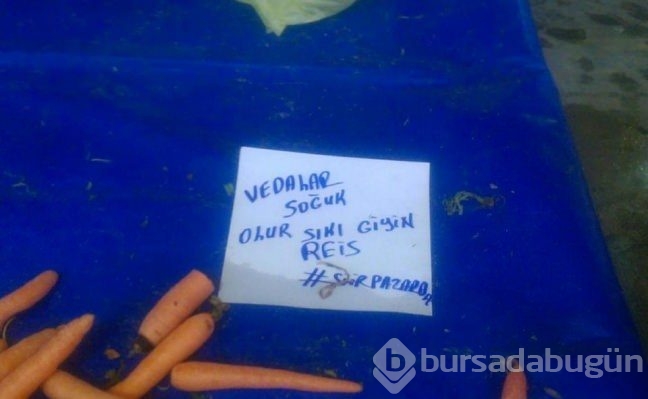 VEDALAR
SOĞUK
OLUR SIKI GİYİN
REİS
#ŞİİRPAZARDA
bursadabugün